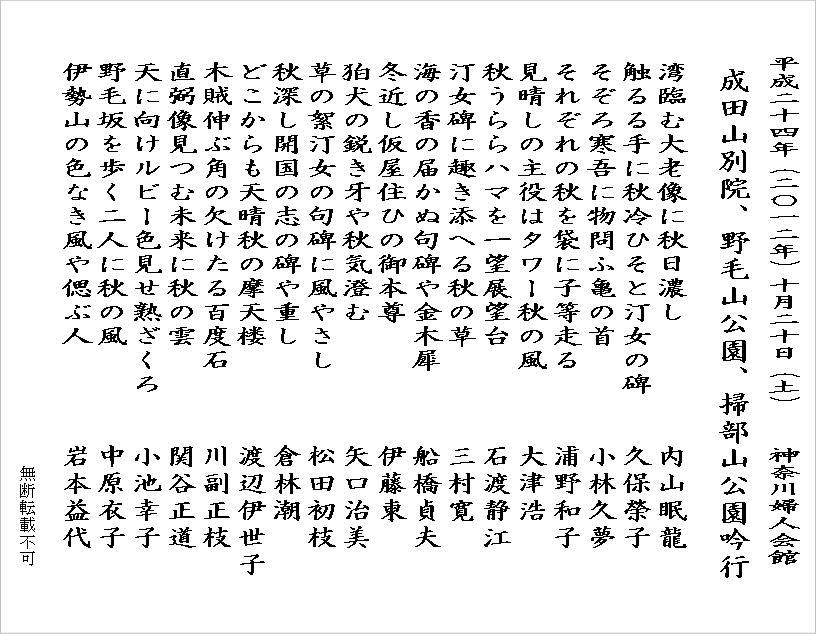 平成二十四年（二〇一二年）十月二十日（土）　神奈川婦人会館
成田山別院、野毛山公園、掃部山公園吟行
湾臨む大老像に秋日濃し　内山眠龍
触るる手に秋冷ひそと汀女の碑　久保榮子
そぞろ寒吾に物問ふ亀の首　小林久夢
それぞれの秋を袋に子等走る　浦野和子
見晴しの主役はタワー秋の風　大津浩
秋うららハマを一望展望台　石渡静江
汀女碑に趣き添へる秋の草　三村寛
海の香の届かぬ句碑や金木犀　船橋貞夫
冬近し仮屋住ひの御本尊　伊藤東
狛犬の鋭き牙や秋気澄む　矢口治美
草の絮汀女の句碑に風やさし　松田初枝
秋深し開国の志の碑や重し　倉林潮
どこからも天晴秋の摩天楼　渡辺伊世子
木賊伸ぶ角の欠けたる百度石　川副正枝
直弼像見つむ未来に秋の雲　関谷正道
天に向けルビー色見せ熟ざくろ　小池幸子
野毛坂を歩く二人に秋の風　中原衣子
伊勢山の色なき風や偲ぶ人　岩本益代
無断転載不可